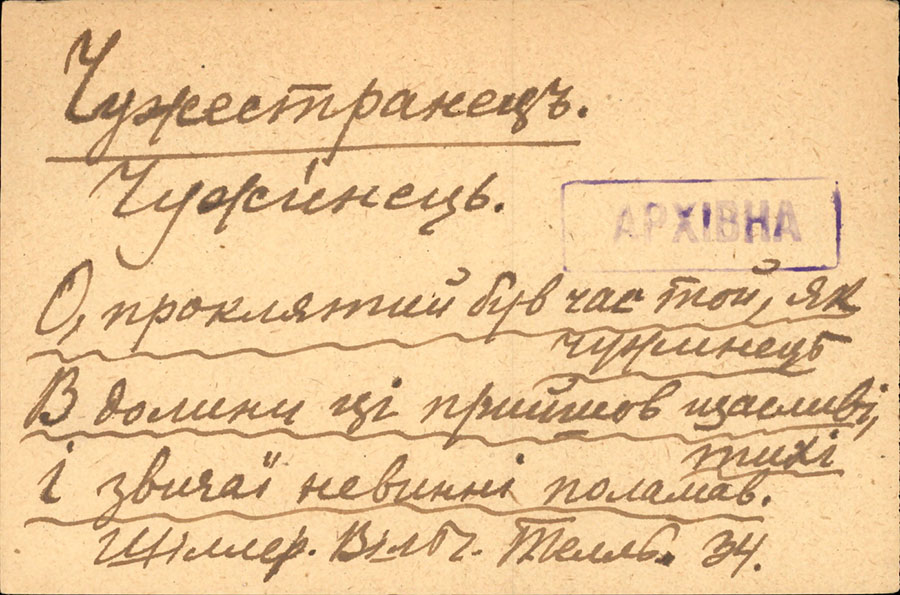 Чужестранецъ.
Чужінець.
АРХІВНА
О, проклятий був час той, як
чужинець
В долини ці прийшов щасливі,
тихі
І звичаї невинні поламав.
Шіллер. Вільг. Телль. 34.